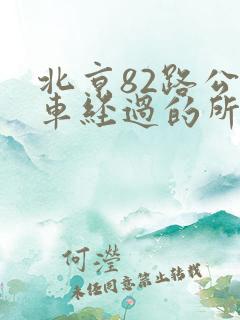 北京82路公
車經過的所
何瀅
未經同意禁止轉載